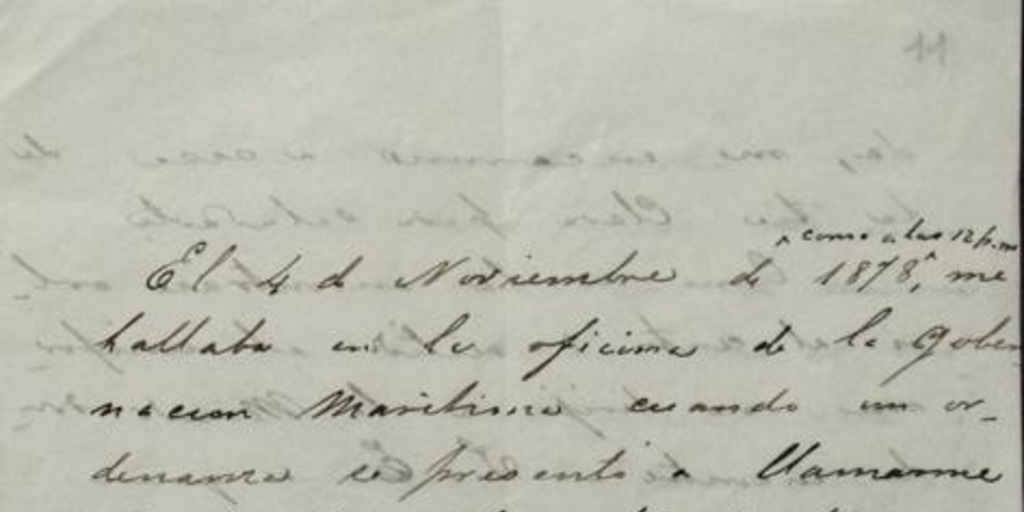 11
como a las 12 p.m
El 4 de Noviembre de 1878, me
hallaba en la oficina de la Gober
nacion Maritima cuando un or-
denanza se presentó a llamarme